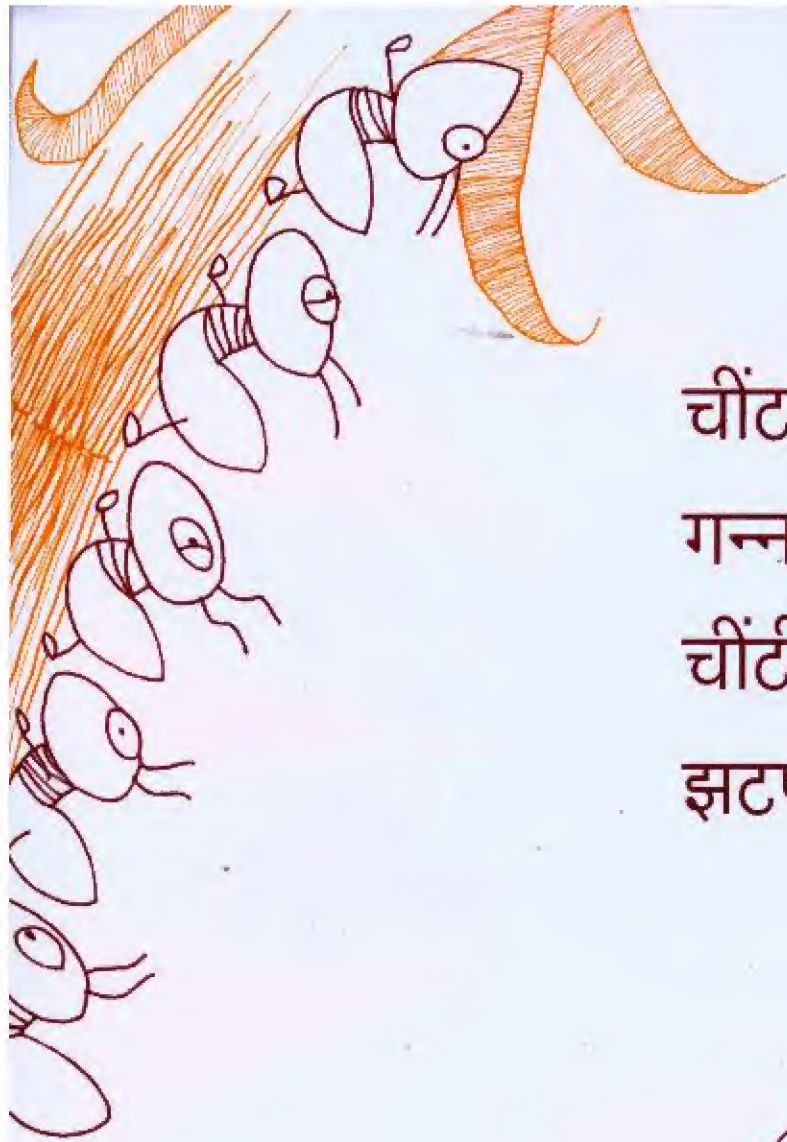 चींट
गन्न
चींटी
झटप